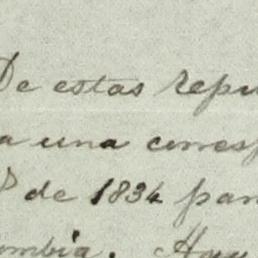 De estas repu
a una corresp
P de 1834 par
ombia. Hay